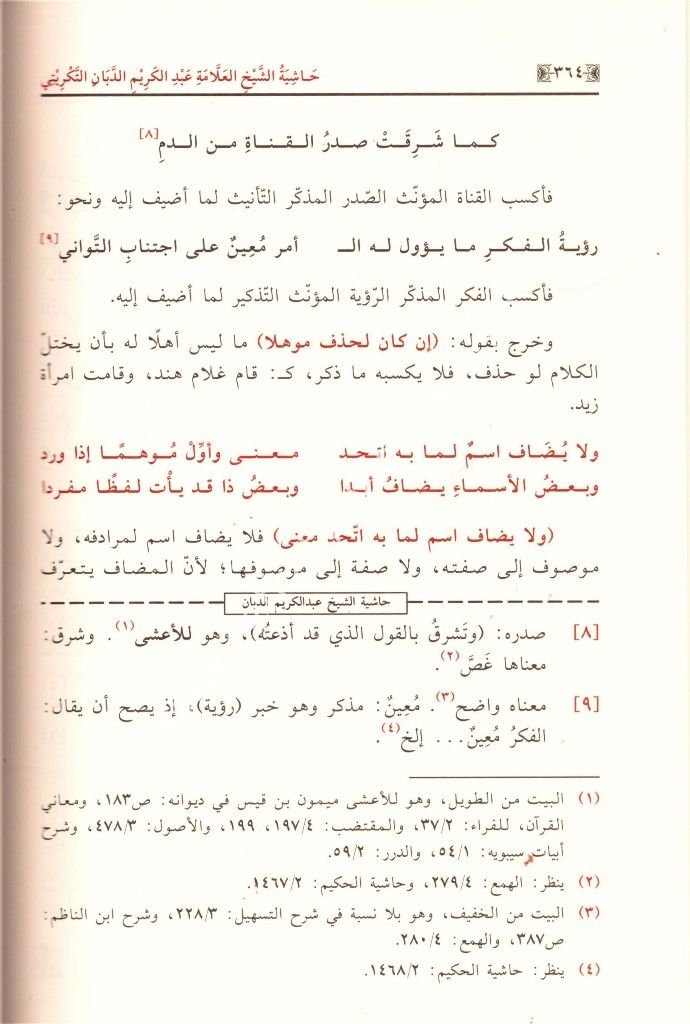 ﴿٣٦٤﴾ حَاشِيَةُ الشَّيْخِ العَلَّامَةِ عَبْدِ الكَرِيْمِ الدَّبَانِ التَّكْرِيْتِي
كـمـا شَـرِقَـتْ صدرُ الـقـنـاةِ مـن الـدمِ[٨]
فأكسب القناة المؤنّث الصّدر المذكّر التّأنيث لما أضيف إليه ونحو:
رؤيةُ الـفـكـرِ ما يـؤول لـه الـ أمر مُعِينٌ على اجتنابِ التَّواني[٩]
فأكسب الفكر المذكّر الرّؤية المؤنّث التّذكير لما أضيف إليه.
وخرج بقوله: (إن كان لحذف موهلا) ما ليس أهلًا له بأن يختلّ
الكلام لو حذف، فلا يكسبه ما ذكر، كـ: قام غلام هند، وقامت امرأة
زيد.
ولا يُـضَـاف اسـمٌ لـمـا بـه اتـحـد مـعـنـى وأوِّلْ مُـوهـمًـا إذا ورد
وبـعـضُ الأسـمـاءِ يـضـافُ أبـدا وبـعـضُ ذا قـد يـأْت لـفـظًـا مـفـردا
(ولا يضاف اسم لما به اتّحد معنى) فلا يضاف اسم لمرادفه، ولا
موصوف إلى صفته، ولا صفة إلى موصوفها؛ لأنّ المضاف يتعرّف
حاشية الشيخ عبدالكريم الدبان
[٨] صدره: (وتَشرقُ بالقول الذي قد أذعتُه)، وهو للأعشى(١). وشرق:
معناها غَصَّ(٢).
[٩] معناه واضح(٣). مُعِينٌ: مذكر وهو خبر (رؤية)، إذ يصح أن يقال:
الفكرُ مُعِينٌ... إلخ(٤).
(١) البيت من الطويل، وهو للأعشى ميمون بن قيس في ديوانه: ص١٨٣، ومعاني
القرآن، للفراء: ٣٧/٢، والمقتضب: ١٩٧/٤، ١٩٩، والأصول: ٤٧٨/٣، وشرح
أبيات سيبويه: ٥٤/١، والدرر: ٥٩/٢.
(٢) ينظر: الهمع: ٢٧٩/٤، وحاشية الحكيم: ١٤٦٧/٢.
(٣) البيت من الخفيف، وهو بلا نسبة في شرح التسهيل: ٢٢٨/٣، وشرح ابن الناظم:
ص٣٨٧، والهمع: ٢٨٠/٤.
(٤) ينظر: حاشية الحكيم: ١٤٦٨/٢.